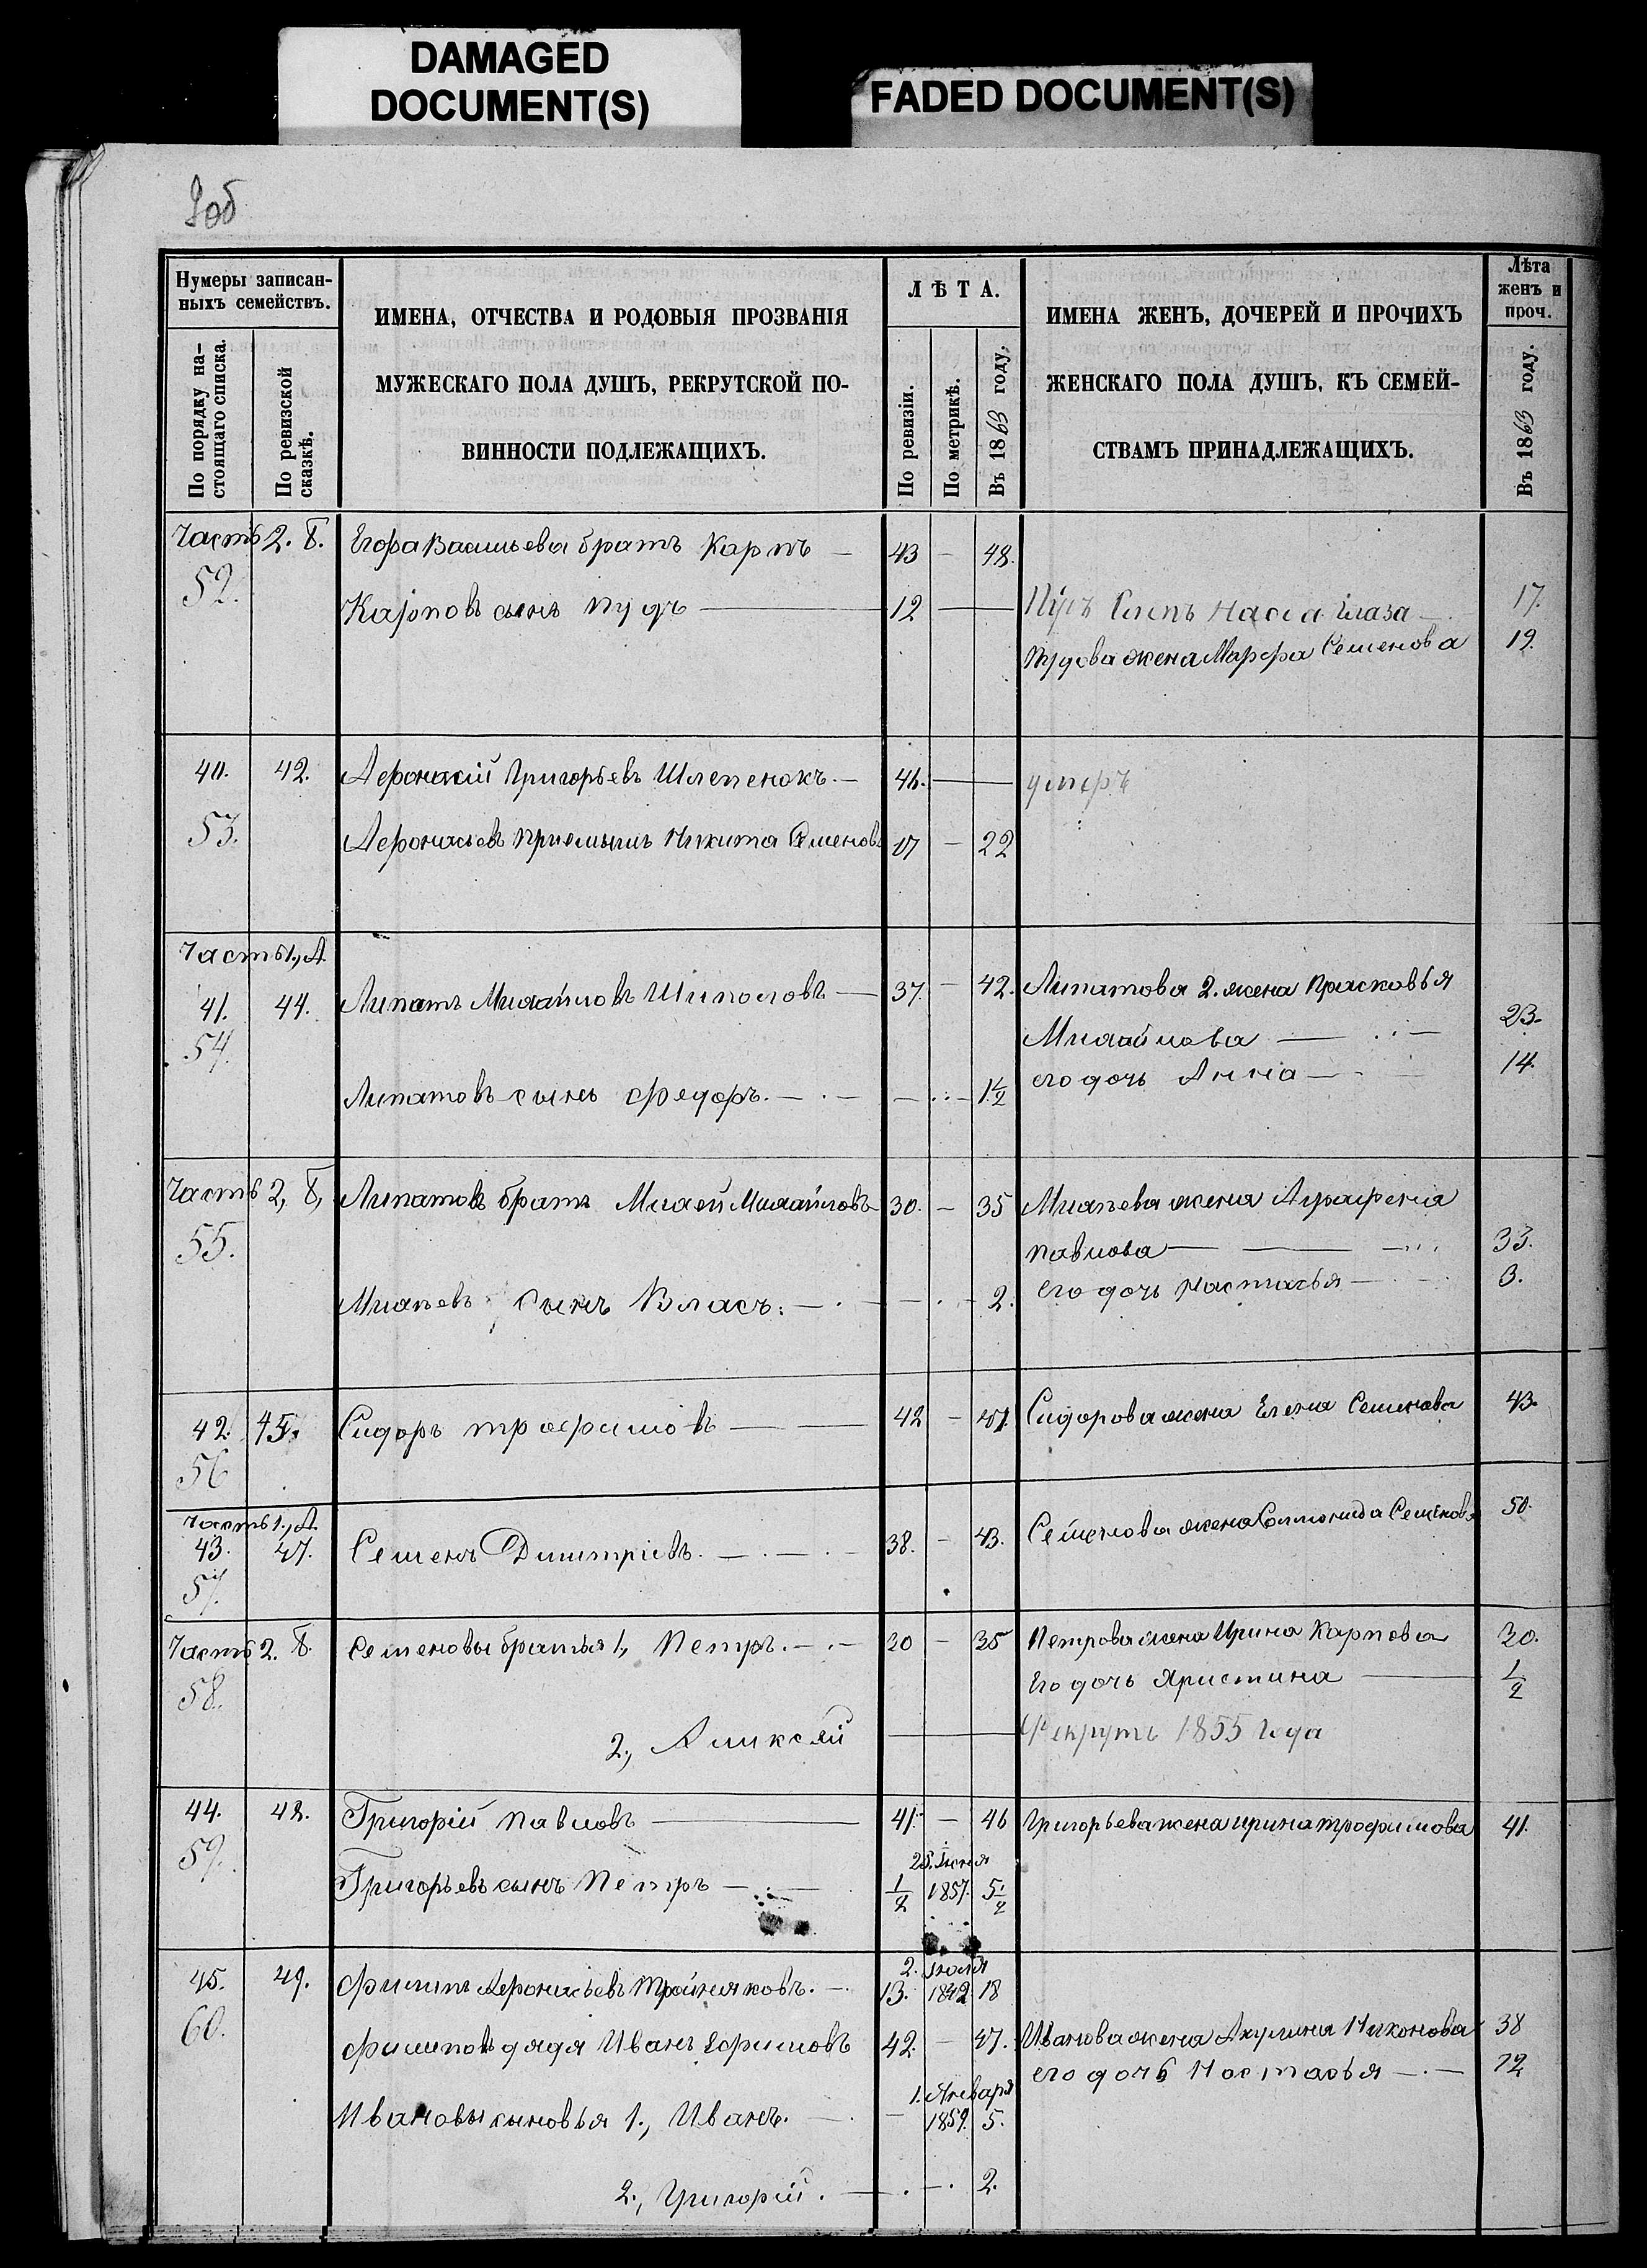 DAMAGED
DOCUMENT(S)
FADED DOCUMENT(S)
9об
Нумеры записан-
ныхъ семействъ.
По порядку на-
стоящаго списка.
По ревизской
сказкѣ.
ИМЕНА, ОТЧЕСТВА И РОДОВЫЯ ПРОЗВАНІЯ
МУЖЕСКАГО ПОЛА ДУШЪ, РЕКРУТСКОЙ ПО-
ВИННОСТИ ПОДЛЕЖАЩИХЪ.
ЛѢТА.
По ревизіи.
По метрикѣ.
Въ 1863 году.
ИМЕНА ЖЕНЪ, ДОЧЕРЕЙ И ПРОЧИХЪ
ЖЕНСКАГО ПОЛА ДУШЪ, КЪ СЕМЕЙ-
СТВАМЪ ПРИНАДЛЕЖАЩИХЪ.
Лѣта
женъ и
проч.
Въ 1863 году.
Часть 2. Б. Егора Васильева братъ Карпъ — 43 — 48.
52.
Карповъ сынъ Пудъ — 12 — 17.
Пудова жена Марфа Семенова 19.
40. 42. Афонасій Григорьевъ Шлепенокъ. — 46. — умеръ
53. Афонасьевъ приемышъ Никита Семеновъ 17 — 22
Часть 1., А.
41. 44. Липатъ Михайловъ Шиполовъ — 37. — 42. Липатова 2. жена Прасковья
Михайлова — 23.
54.
его дочь Анна — 14.
Липатовъ сынъ Федоръ. — 1 1/2
Часть 2, Б, Липатовъ братъ Михей Михайловъ 30. — 35 Михеева жена Аграфена
55. Павлова — 33.
его дочь Настасья — 3.
Михеевъ сынъ Власъ. — 2.
42. 45. Сидоръ Трофимовъ — 42 — 47 Сидорова жена Елена Семенова 43.
56
Часть 1., А.
43. 47. Семенъ Димитріевъ. — 38. — 43. Семенова жена Соломонида Семенова 50.
57.
Часть 2. Б. Семеновы братья 1., Петръ. — 30 — 35 Петрова жена Ирина Карпова 30.
58. Его дочь Христина — 1/2
2., Алексей — Рекрутъ 1855 года
44. 48. Григорій Павловъ — 41. — 46 Григорьева жена Ирина Трофимова 41.
59. Григорьевъ сынъ Петръ — 1/2 1857. 5 1/2
45. 49. Филипъ Афонасьевъ Тройняковъ. — 13. 1842 18
60.
Филиповъ дядя Иванъ Ефимовъ 42. — 47. Иванова жена Акулина Никонова 38
его дочь Настасья — 12
1. Января
Ивановы сыновья 1., Иванъ. — 1859. 5.
2., Григорій. — 2.